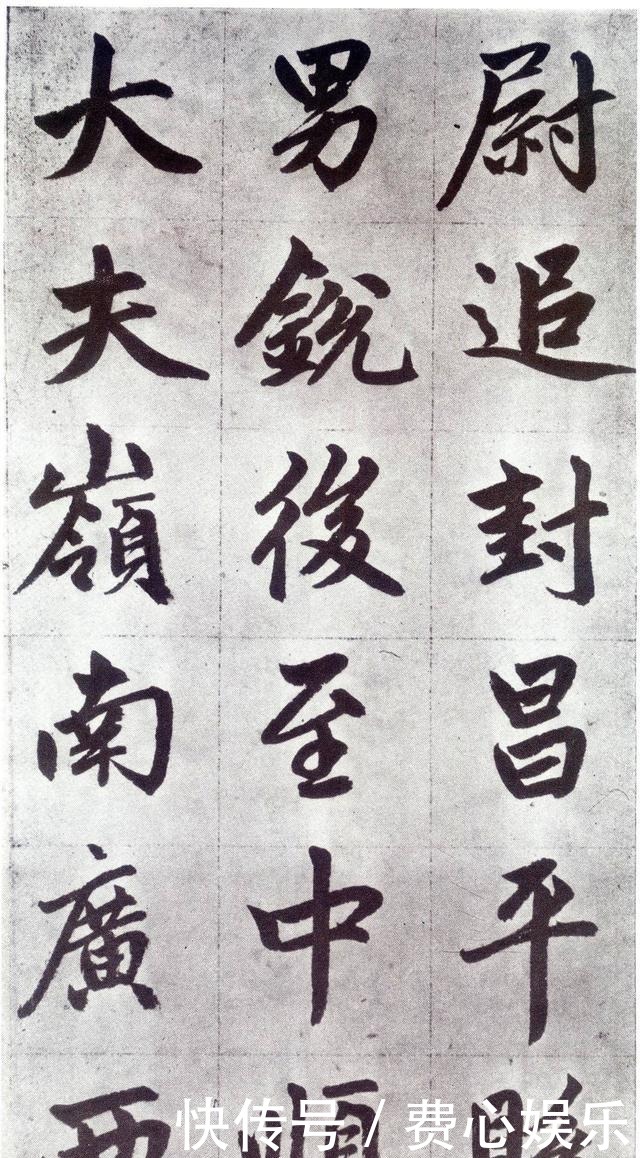 尉追封昌平縣
男銳後至中順
大夫嶺南廣西
快传号 / 费心娱乐